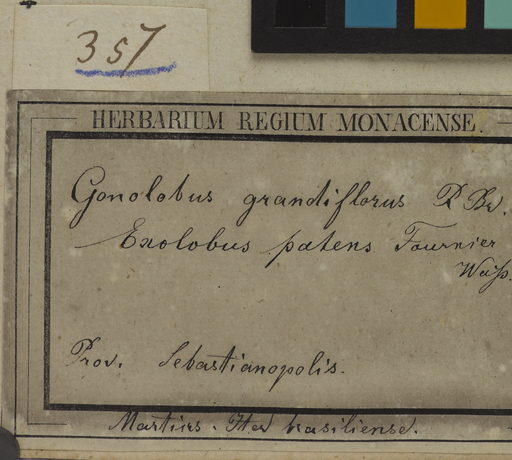 357
HERBARIUM REGIUM MONACENSE.
Gonolobus grandiflorus R Br.
Exolobus patens Fournier
Prov. Sebastianopolis.
Martius. Iter brasiliense.